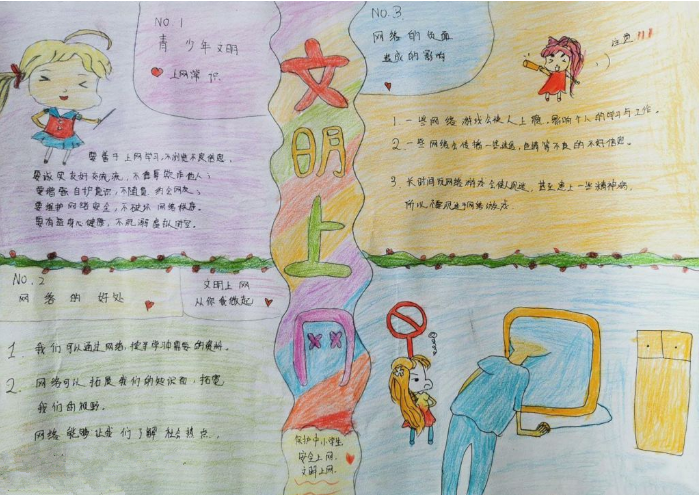 NO.1
青少年文明
上网常识
要善于上网学习,不浏览不良信息。
要诚实友好交流,不侮辱欺诈他人;
要增强自护意识,不随意约会网友;
要维护网络安全,不破坏网络秩序。
要有益身心健康,不沉溺虚拟时空。
NO.2
网络的好处
文明上网
从你我做起
1. 我们可以通过网络,搜寻学习需要的资料。
2. 网络可以拓展我们的知识面,拓宽
我们的视野。
网络能够让我们了解社会热点。
文明上网
保护中小学生
安全上网
文明上网。
NO.3
网络的负面
造成的影响
注意!!!
1 一些网络游戏会使人上瘾,影响个人的学习与工作。
2. 一些网络会传播一些 等不良的不好信息。
3. 长时间玩网络游戏会使人 甚至患上一些精神病,
所以 网络游戏